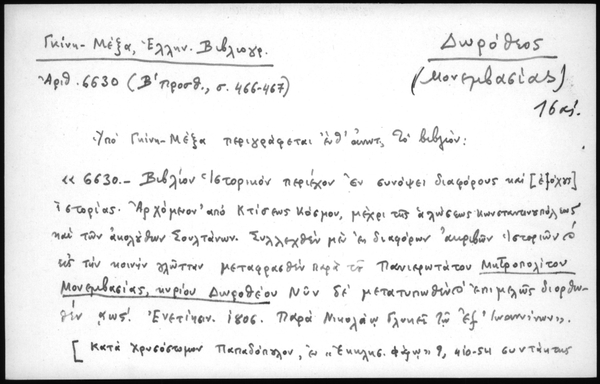 Γκίνη - Μέξα, Ἑλλην. Βιβλιογρ.
Δωρόθεος
Ἀριθ. 6630 (Β' προσθ., σ. 466-467)
(Μονεμβασίας)
16 αἰ.
Ὑπό Γκίνη - Μέξα περιγράφεται τὸ βιβλίον:
« 6630.- Βιβλίον Ἱστορικόν περιέχον ἐν συνόψει διαφόρους καί [ἐξόχους]
ἱστορίας. Ἀρχόμενον ἀπό Κτίσεως Κόσμου, μέχρι τῆς ἁλώσεως Κωνσταντινουπόλεως
καί τῶν ἀκολούθων Σουλτάνων. Συλλεχθέν μέν ἐκ διαφόρων ἀκριβῶν ἱστοριῶν
εἰς τήν κοινήν γλῶτταν μεταφρασθέν παρά τοῦ Πανιερωτάτου Μητροπολίτου
Μονεμβασίας, κυρίου Δωροθέου Νῦν δέ μετατυπωθέν ἐπιμελῶς διορθω-
θέν Ἐνετίησιν. 1806. Παρά Νικολάῳ Γλυκεῖ τῷ ἐξ Ἰωαννίνων».
[ Κατά Χρυσόστομον Παπαδόπουλον, ἐν «Ἐκκλησ. Φάρῳ» 9, 410-54 συντάκτης